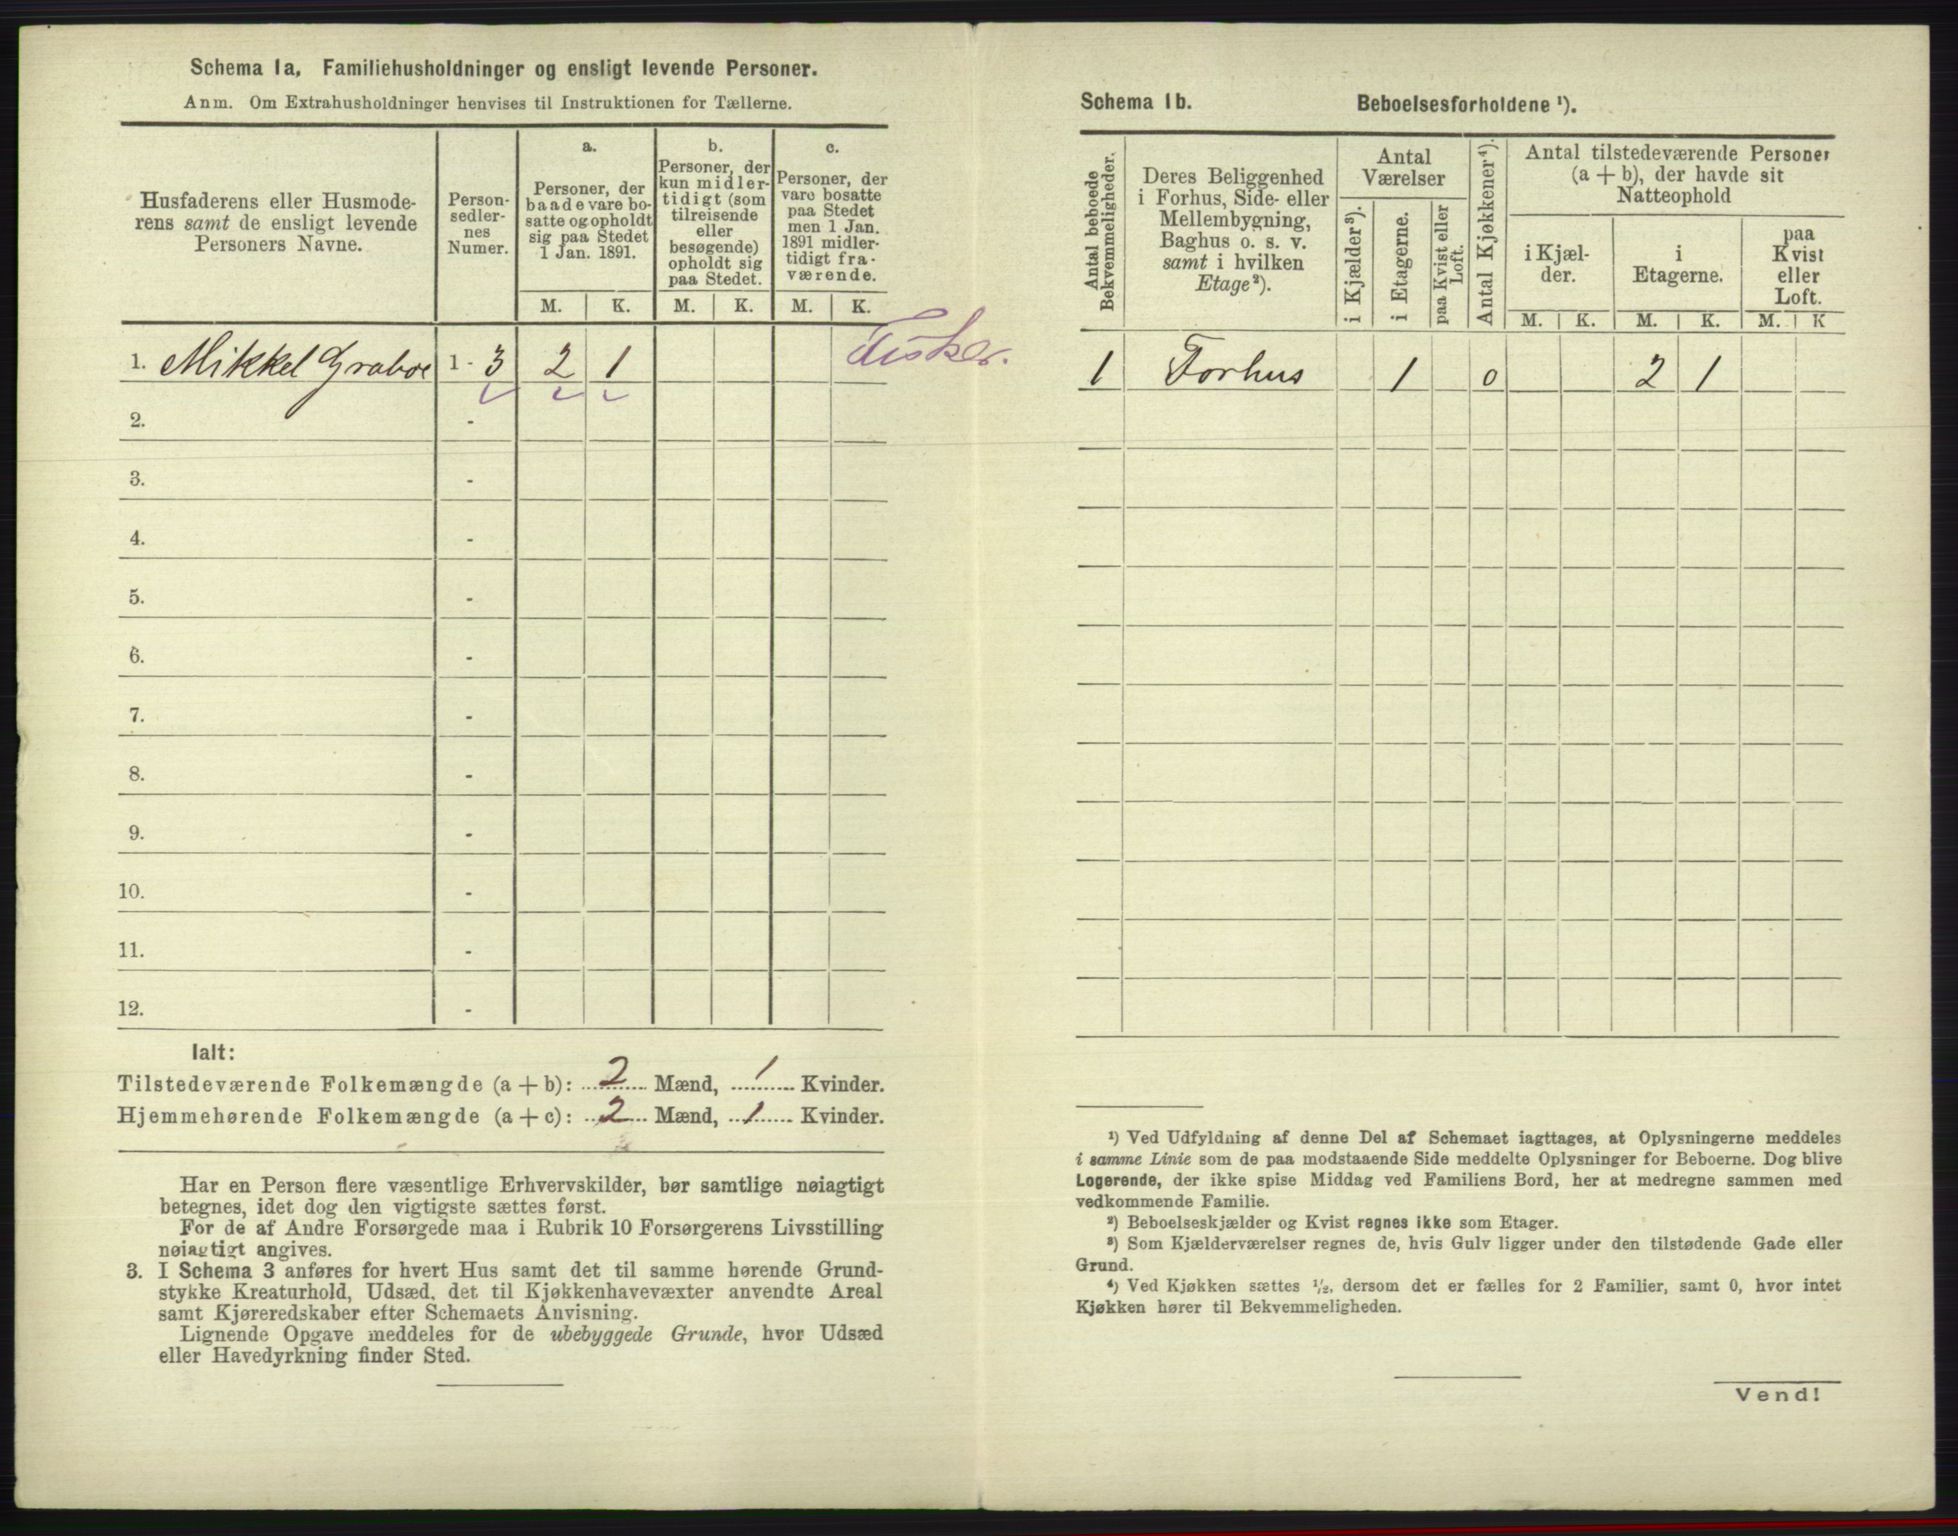 Schema 1a, Familiehusholdninger og ensligt levende Personer.
Anm. Om Extrahusholdninger henvises til Instruktionen for Tællerne.
Husfaderens eller Husmode-
rens samt de ensligt levende
Personers Navne.
Person-
sedler-
nes
Numer.
a.
Personer, der
baade vare bo-
satte og opholdt
sig paa Stedet
1 Jan. 1891.
b.
Personer, der
kun midler-
tidigt (som
tilreisende
eller
besøgende)
opholdt sig
paa Stedet.
c.
Personer, der
vare bosatte
paa Stedet
men 1 Jan.
1891 midler-
tidigt fra-
værende.
M. K. M. K. M. K.
1. Mikkel Graboe 1 - 3 2 1 Fisker.
2. -
3. -
4. -
5. -
6. -
7. -
8. -
9. -
10. -
11. -
12. -
Ialt:
Tilstedeværende Folkemængde (a + b): 2 Mænd, 1 Kvinder.
Hjemmehørende Folkemængde (a + c): 2 Mænd, 1 Kvinder.
Har en Person flere væsentlige Erhvervskilder, bør samtlige nøiagtigt
betegnes, idet dog den vigtigste sættes først.
For de af Andre Forsørgede maa i Rubrik 10 Forsørgerens Livsstilling
nøiagtigt angives.
3. I Schema 3 anføres for hvert Hus samt det til samme hørende Grund-
stykke Kreaturhold, Udsæd, det til Kjøkkenhavevæxter anvendte Areal
samt Kjøreredskaber efter Schemaets Anvisning.
Lignende Opgave meddeles for de ubebyggede Grunde, hvor Udsæd
eller Havedyrkning finder Sted.
Schema 1b. Beboelsesforholdene ¹).
Antal beboede
Bekvemmeligheder.
Deres Beliggenhed
i Forhus, Side- eller
Mellembygning,
Baghus o. s. v.
samt i hvilken
Etage²).
Antal
Værelser
i Kjælder³).
i Etagerne.
paa Kvist eller
Loft.
Antal Kjøkkener⁴).
Antal tilstedeværende Personer
(a + b), der havde sit
Natteophold
i Kjæl-
der.
i
Etagerne.
paa
Kvist
eller
Loft.
M. K. M. K. M. K
1 Forhus 1 0 2 1
¹) Ved Udfyldning af denne Del af Schemaet iagttages, at Oplysningerne meddeles
i samme Linie som de paa modstaaende Side meddelte Oplysninger for Beboerne. Dog blive
Logerende, der ikke spise Middag ved Familiens Bord, her at medregne sammen med
vedkommende Familie.
²) Beboelseskjælder og Kvist regnes ikke som Etager.
³) Som Kjælderværelser regnes de, hvis Gulv ligger under den tilstødende Gade eller
Grund.
⁴) Ved Kjøkken sættes ½, dersom det er fælles for 2 Familier, samt 0, hvor intet
Kjøkken hører til Bekvemmeligheden.
Vend!